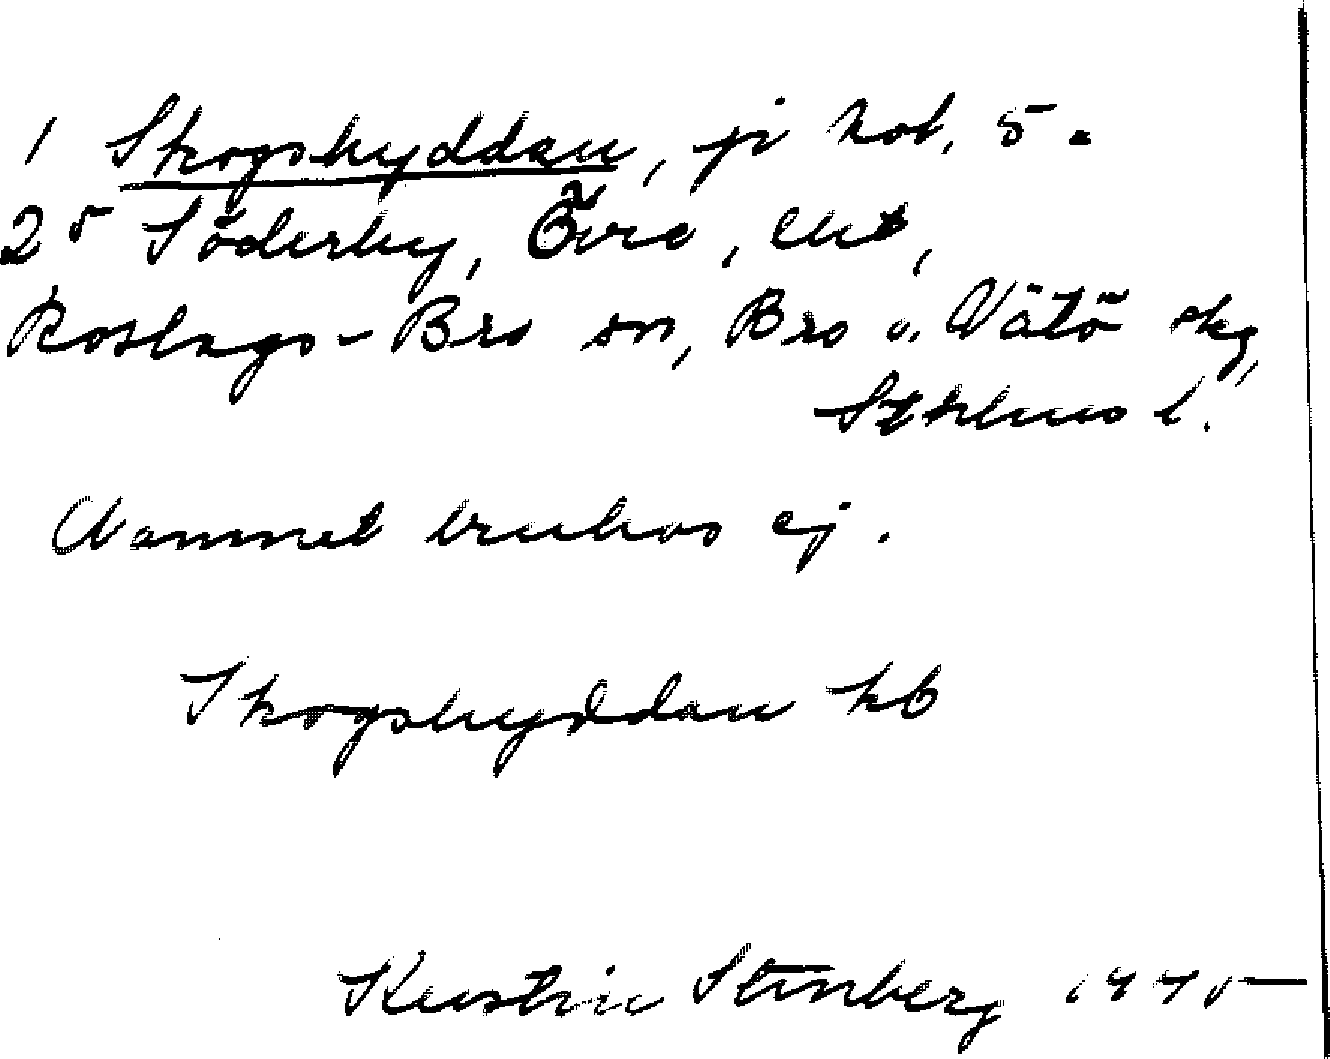 1 Skogshyddan, på kot. 5 -
25 Söderby, Övre, ekt,
Roslags-Bro sn, Bro o. Vätö skg,
Sthlms l.
Namnet brukas ej.
Skogshyddan kb
Kerstin Stenberg 1945